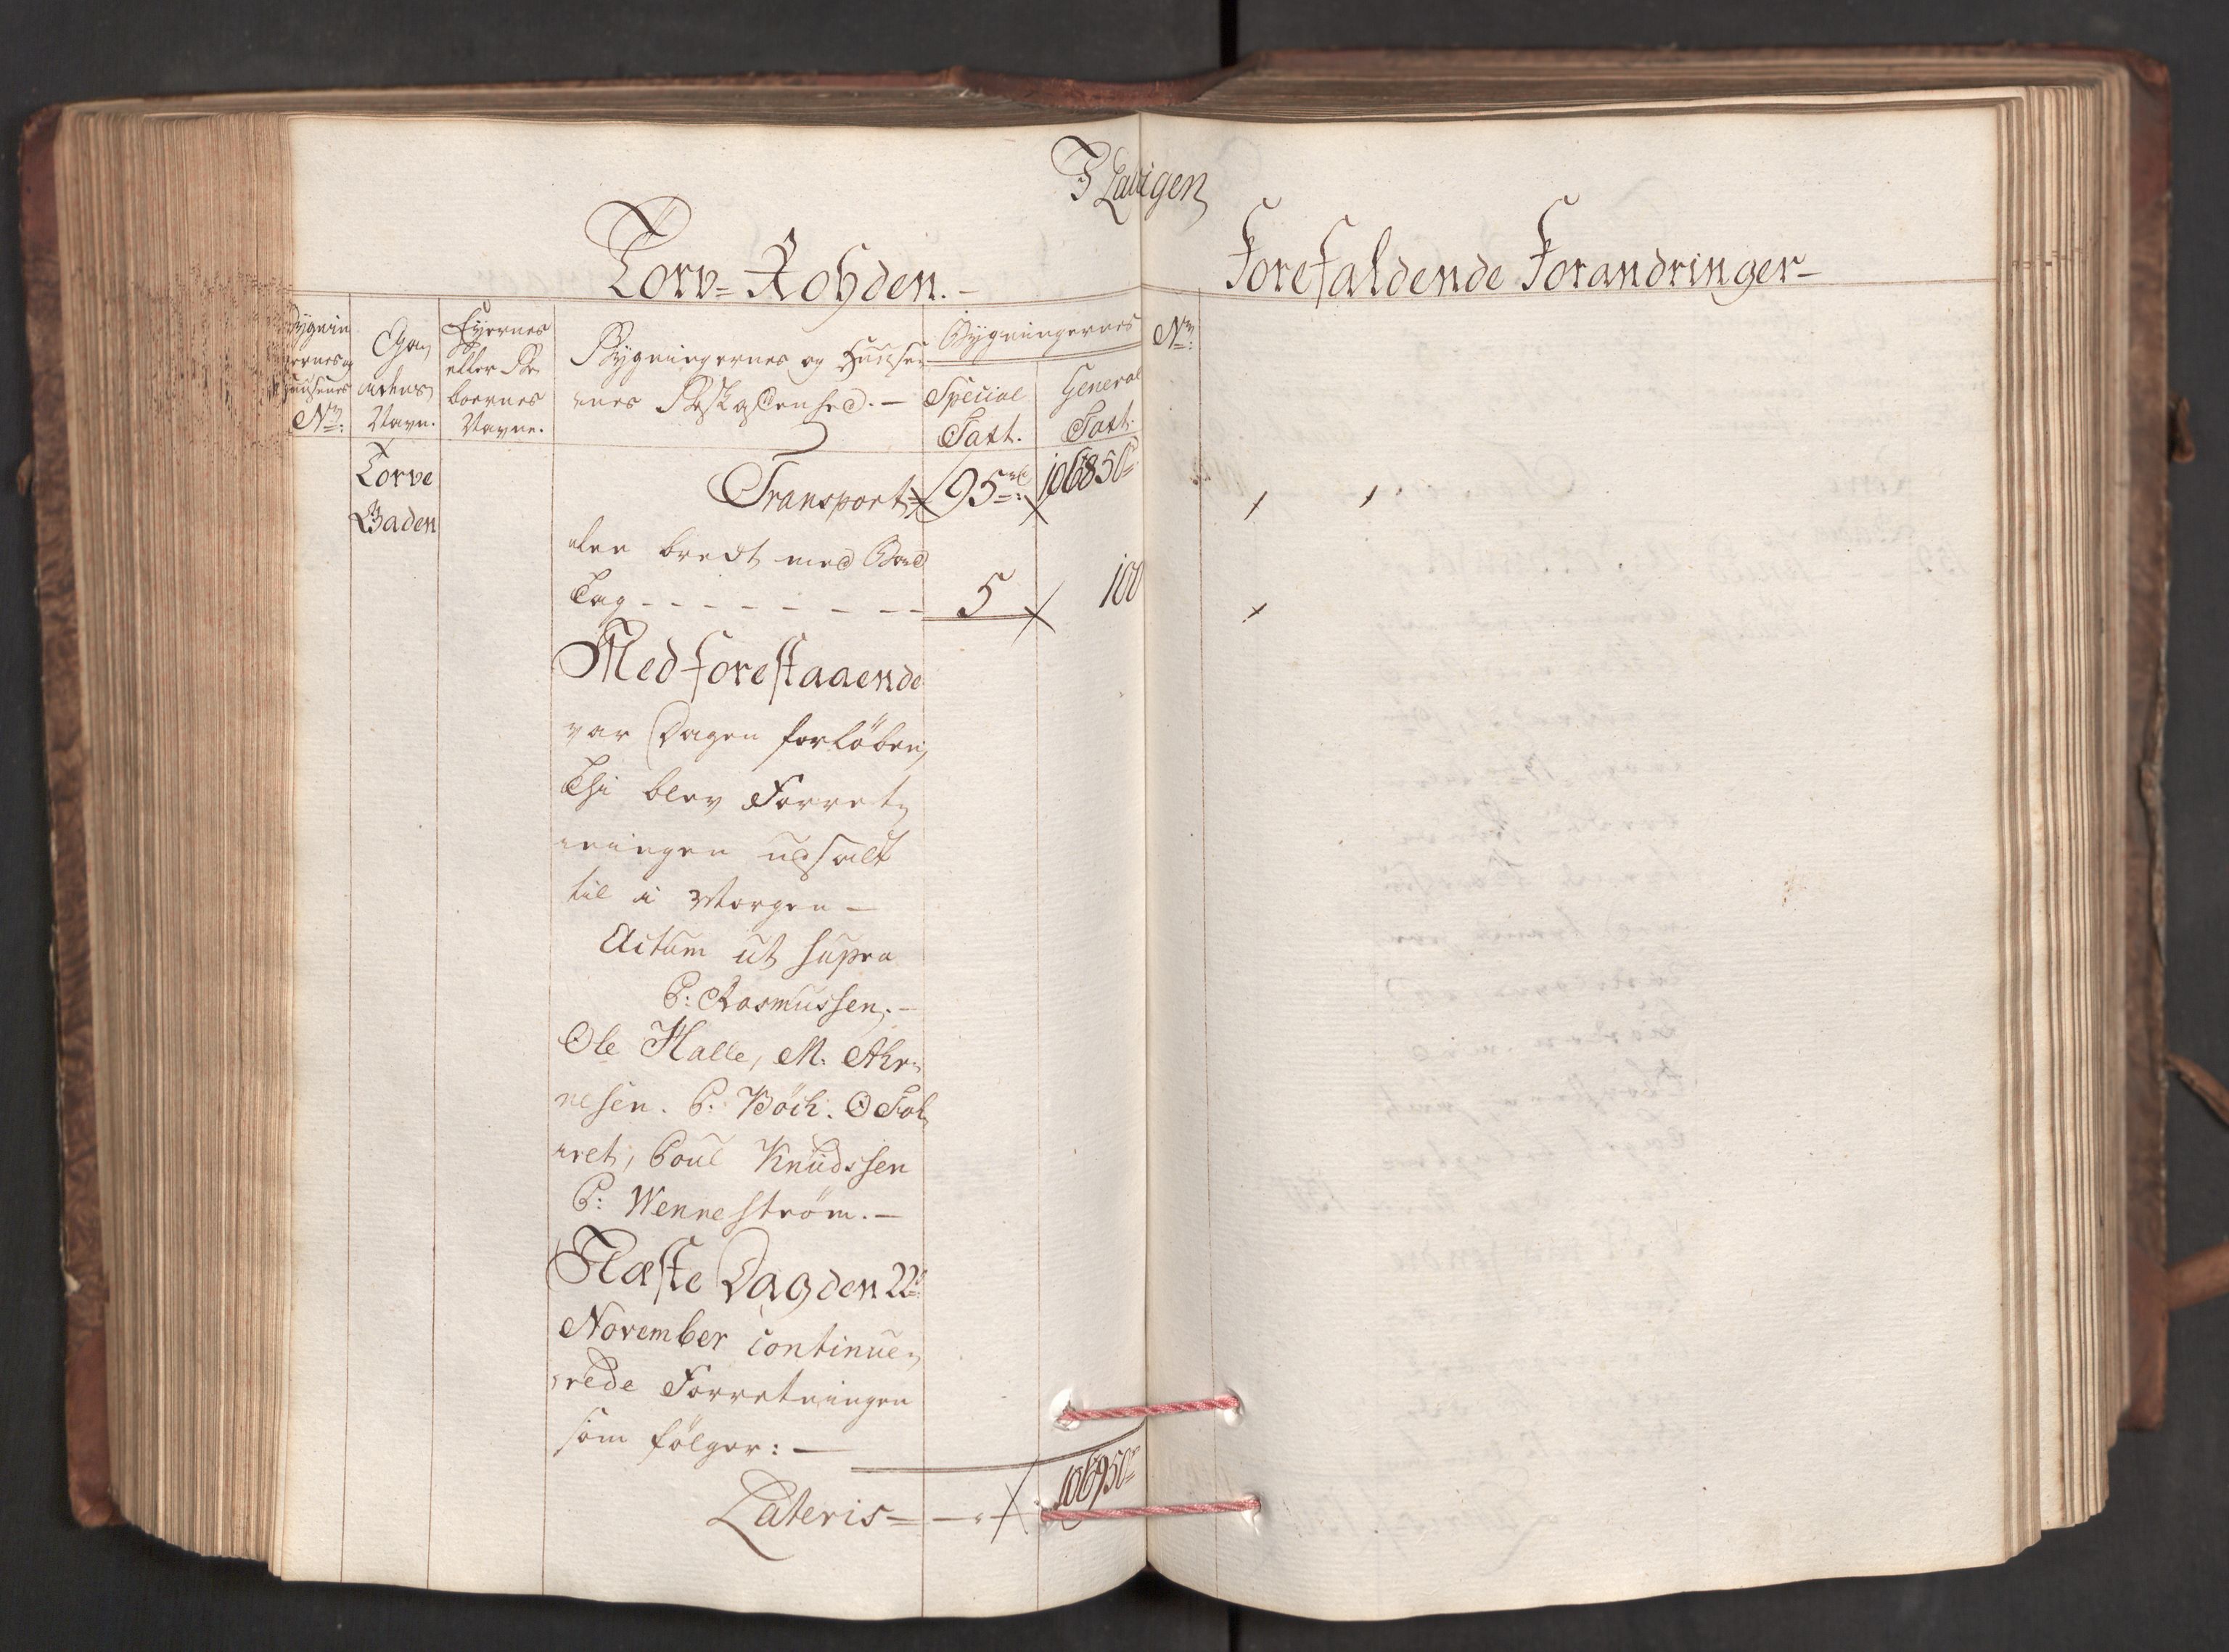 I Lavigen
Torv-Rohden.
Forefaldende Forandringer
Bygnin
gernes og
Huusenes
No:
Ga
dens
Navn.
Eyernes
eller Be
boernes
Navne.
Bygningernes og Huuse
nes Beskaffenhed.
Bygningernes
Special
Taxt.
General
Taxt.
No:
Torve
Gaden
Transport 95 rd: 106850
alen bredt med Bord
Tag - - - - - - - - 5 100
Med forestaaende
var Dagen forløben,
Thi blev Forret
ningen udsadt
til i Morgen
Actum ut supra
P: Rasmussen.
Ole Halle, M. Ahr
nesen. P: Böch. O
Poul Knudssen
P: Wenneström.
Næste Dag den 22de
November continue
rede Forretningen
som følger:
Lateris 106950